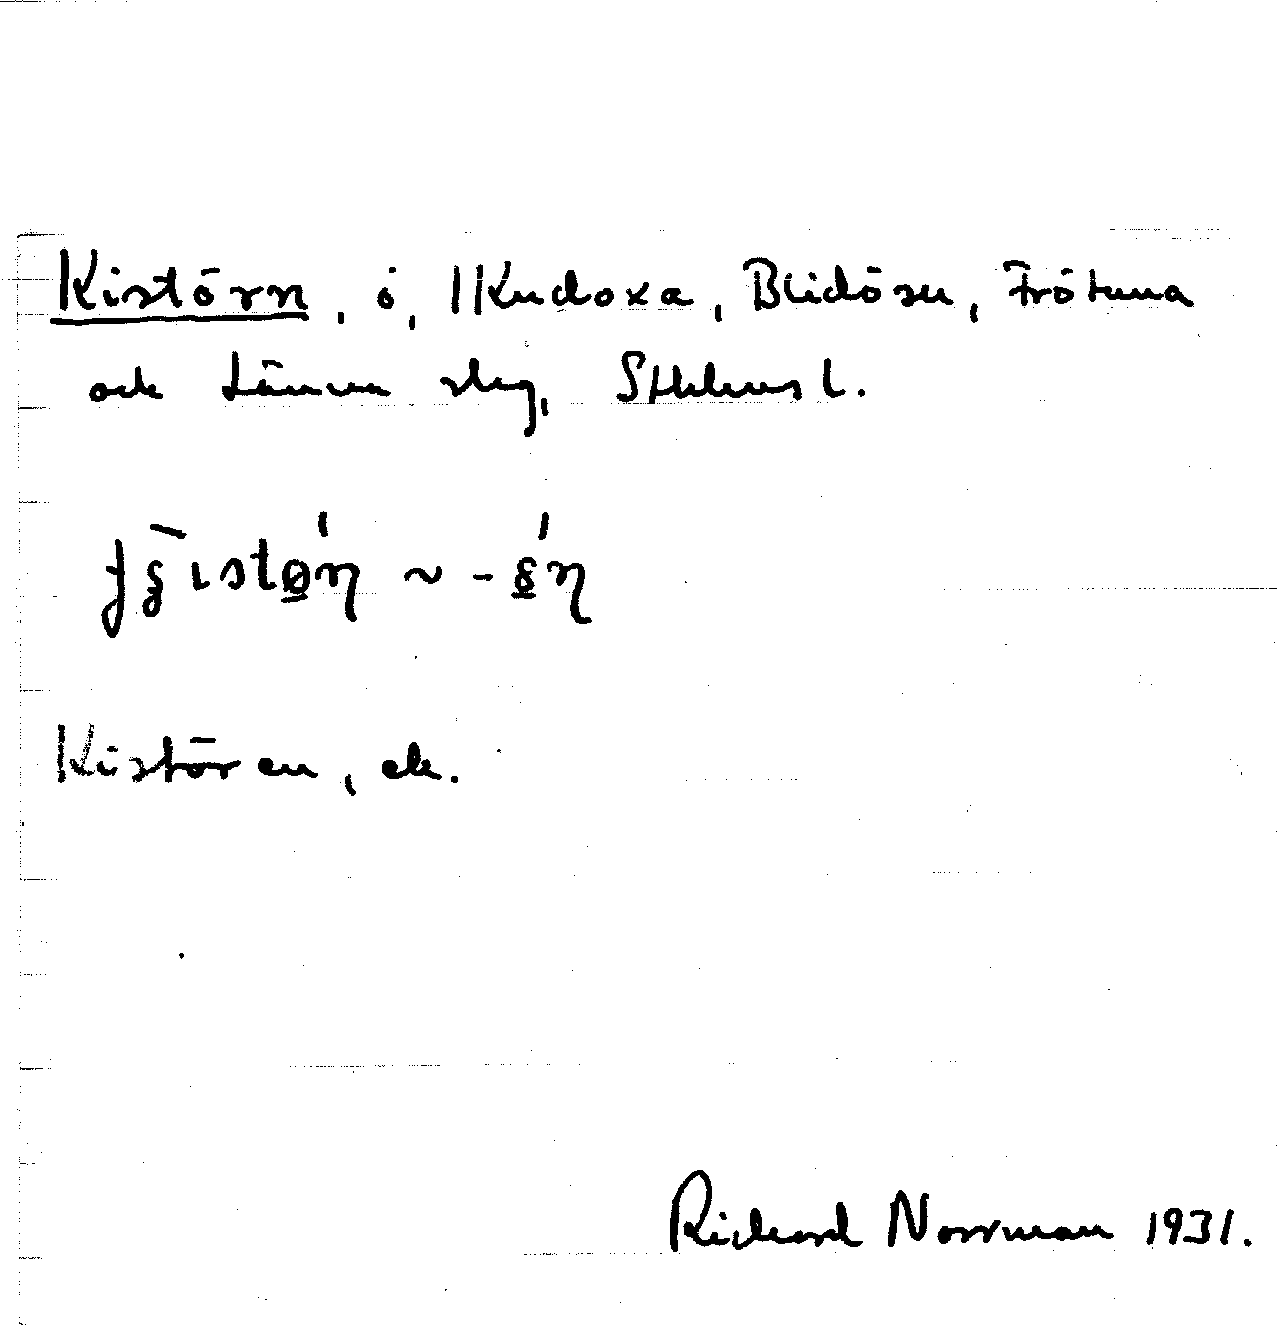 Kistörn, ö, 1 Kudoxa, Blidö sn, Frötuna
och Länna slg, Sthlms l.
-ǿn
Kistören, ek.
Richard Norrman 1931.